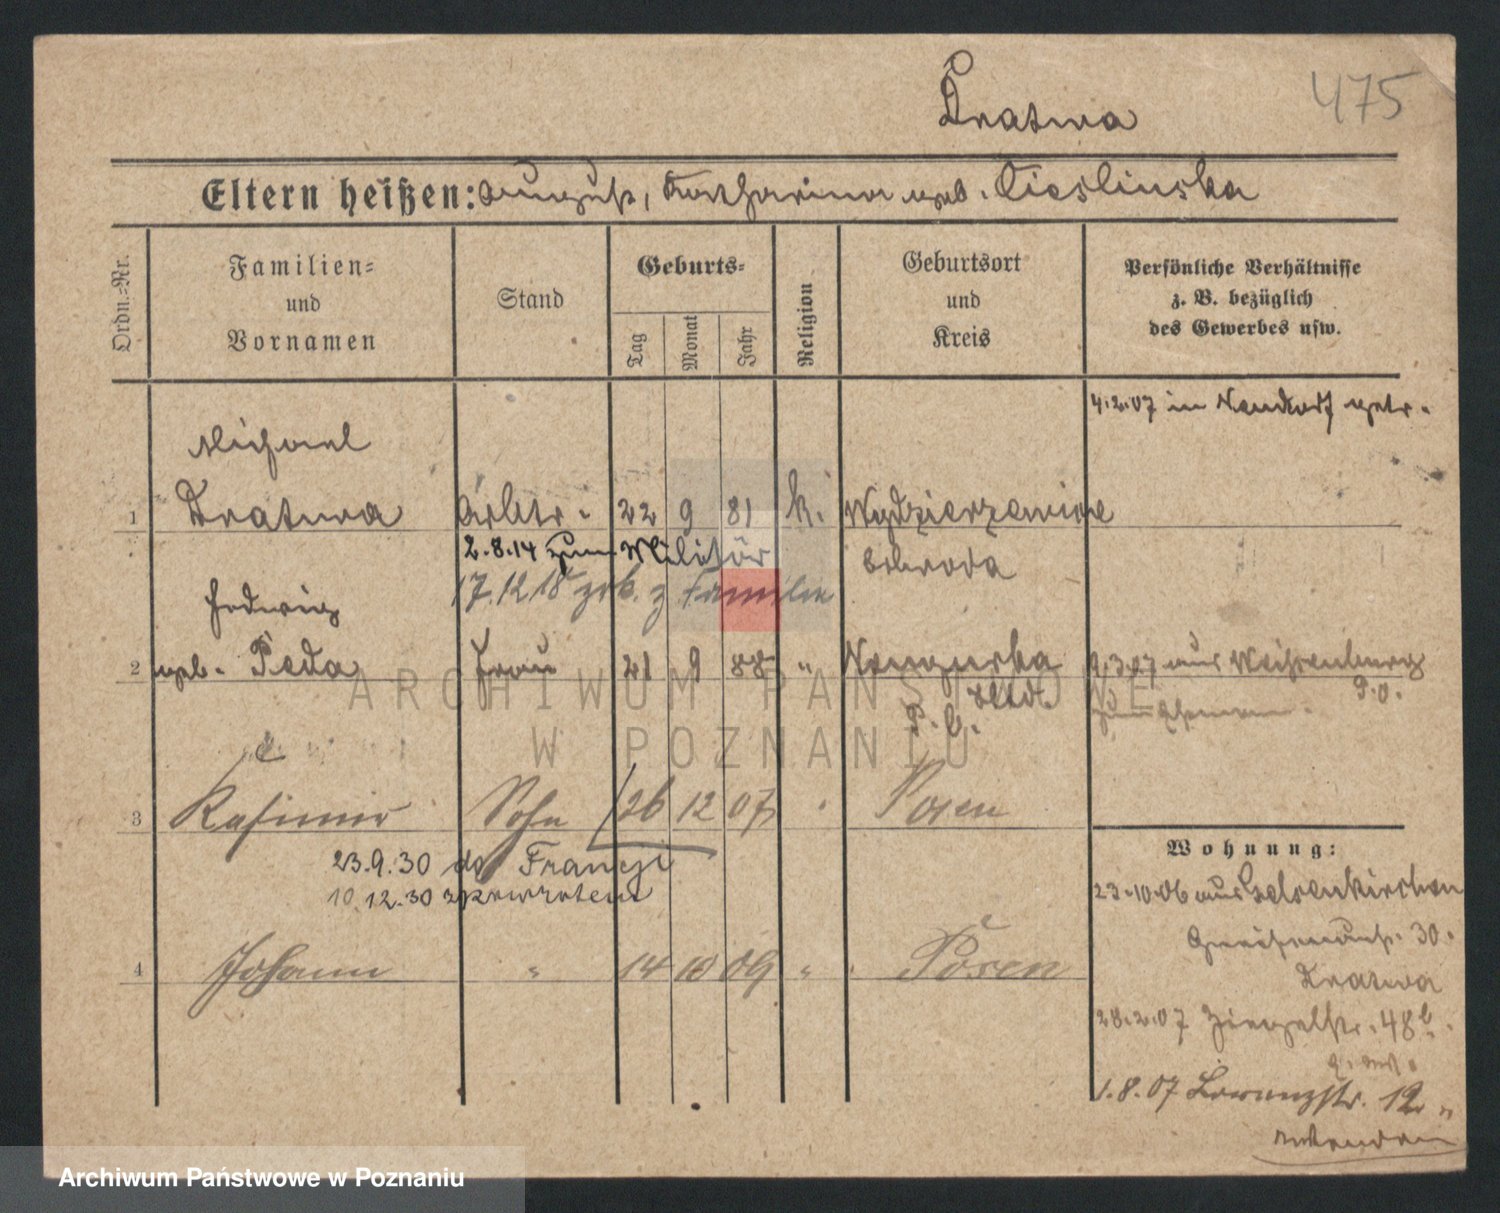 475
Kratwa
Eltern heißen: August, Katharina geb. Cieslinska
Ordn.=Nr.
Familien=
und
Vornamen
Stand
Geburts=
Tag
Monat
Jahr
Religion
Geburtsort
und
Kreis
Persönliche Verhältnisse
z. B. bezüglich
des Gewerbes usw.
4.2.07 in Neudorf getr.
Michael
1 Kratwa Arbtr. 22 9 81 k. Wydzierzewice
2.8.14 zum Militär
Schroda
17.12.18 zrk. z Familie
Hedwig
2 geb. Peda Frau 21 9 88 "
9.3.07 aus Weißenburg
P. O.
3 Kasimir Sohn 26 12 07 Posen
23.9.30 do Francji
10.12.30 z powrotem
4 Johann " 14 10 09 " Posen
Wohnung:
23.10.06 aus Gelsenkirchen
30.
Kratwa
28.2.07 Ziegelstr. 48b.
1.8.07 Lorenzstr. 12
ARCHIWUM PAŃSTWOWE
W POZNANIU
Archiwum Państwowe w Poznaniu